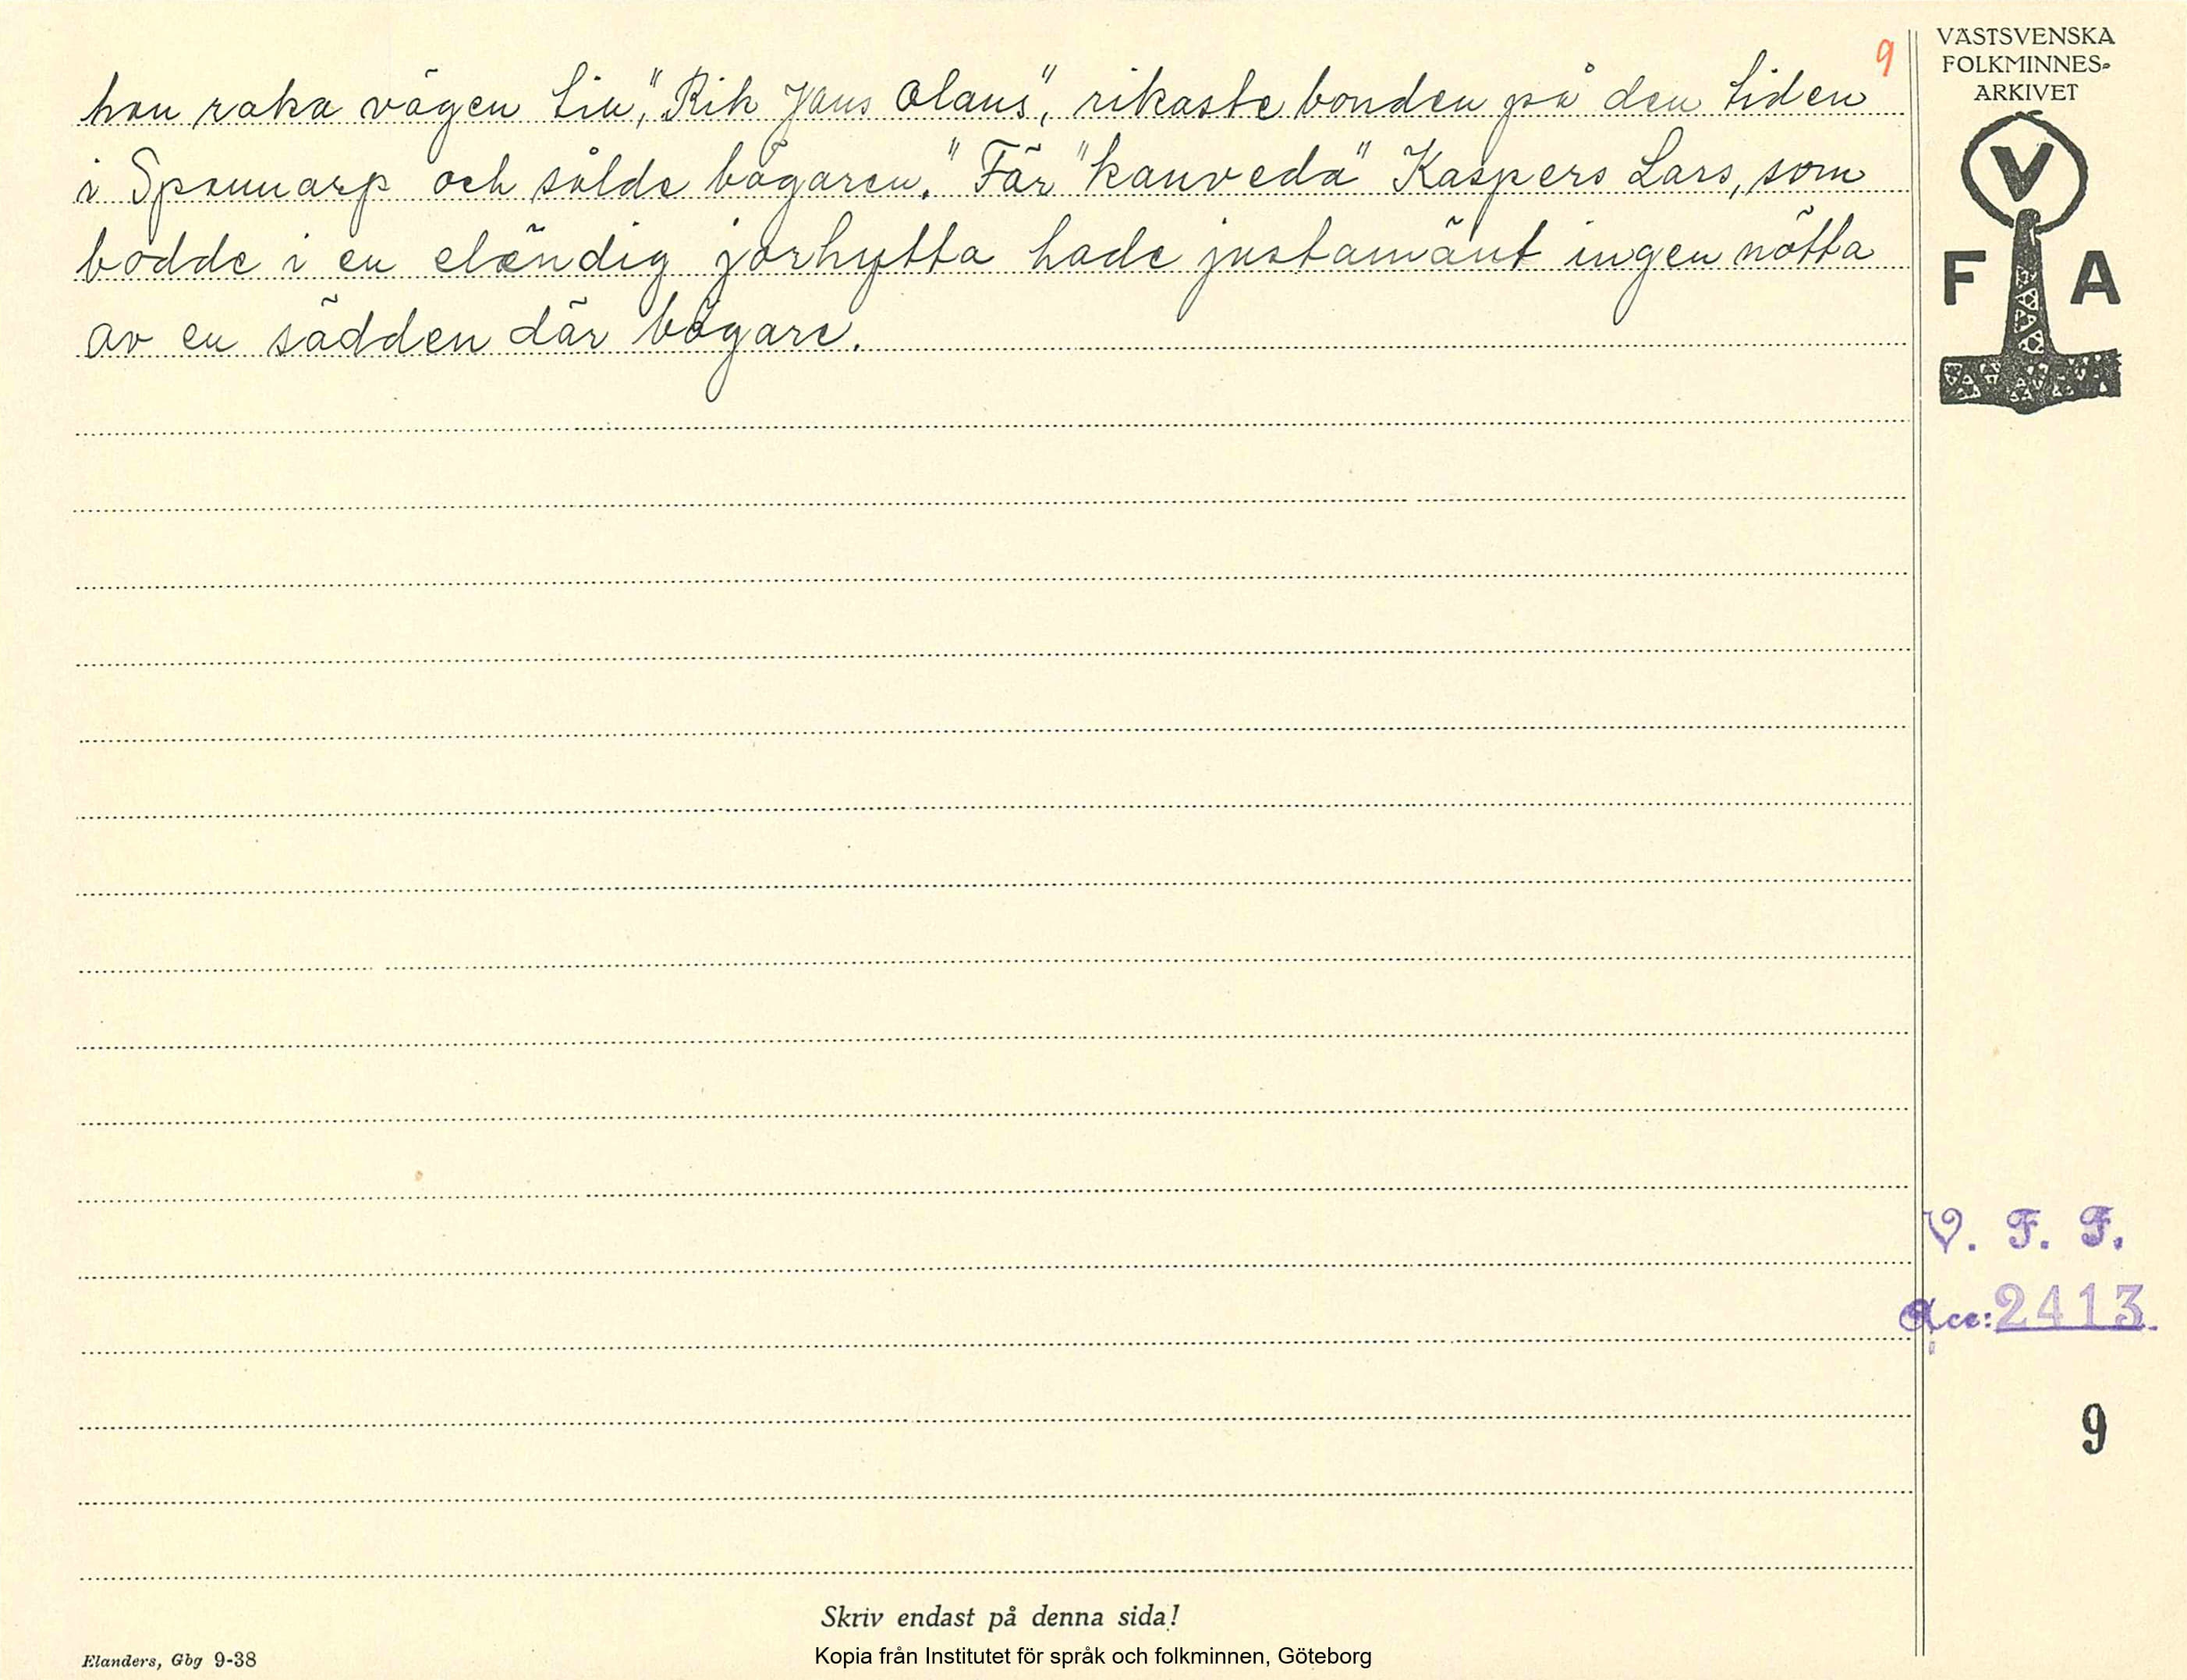 9
han raka vägen till "Rik Jans Olaus", rikaste bonden på den tiden
i Spannarp och sålde bägaren. "Får "kanveda" Kaspers Lars, som
bodde i en eländig jorhytta hade justamänt ingen nötta
av en sådden där bägare.
VÄSTSVENSKA
FOLKMINNES-
ARKIVET
V
F A
V. F. F.
Acc: 2413
9
Skriv endast på denna sida!
Kopia från Institutet för språk och folkminnen, Göteborg
Elanders, Gbg 9-38